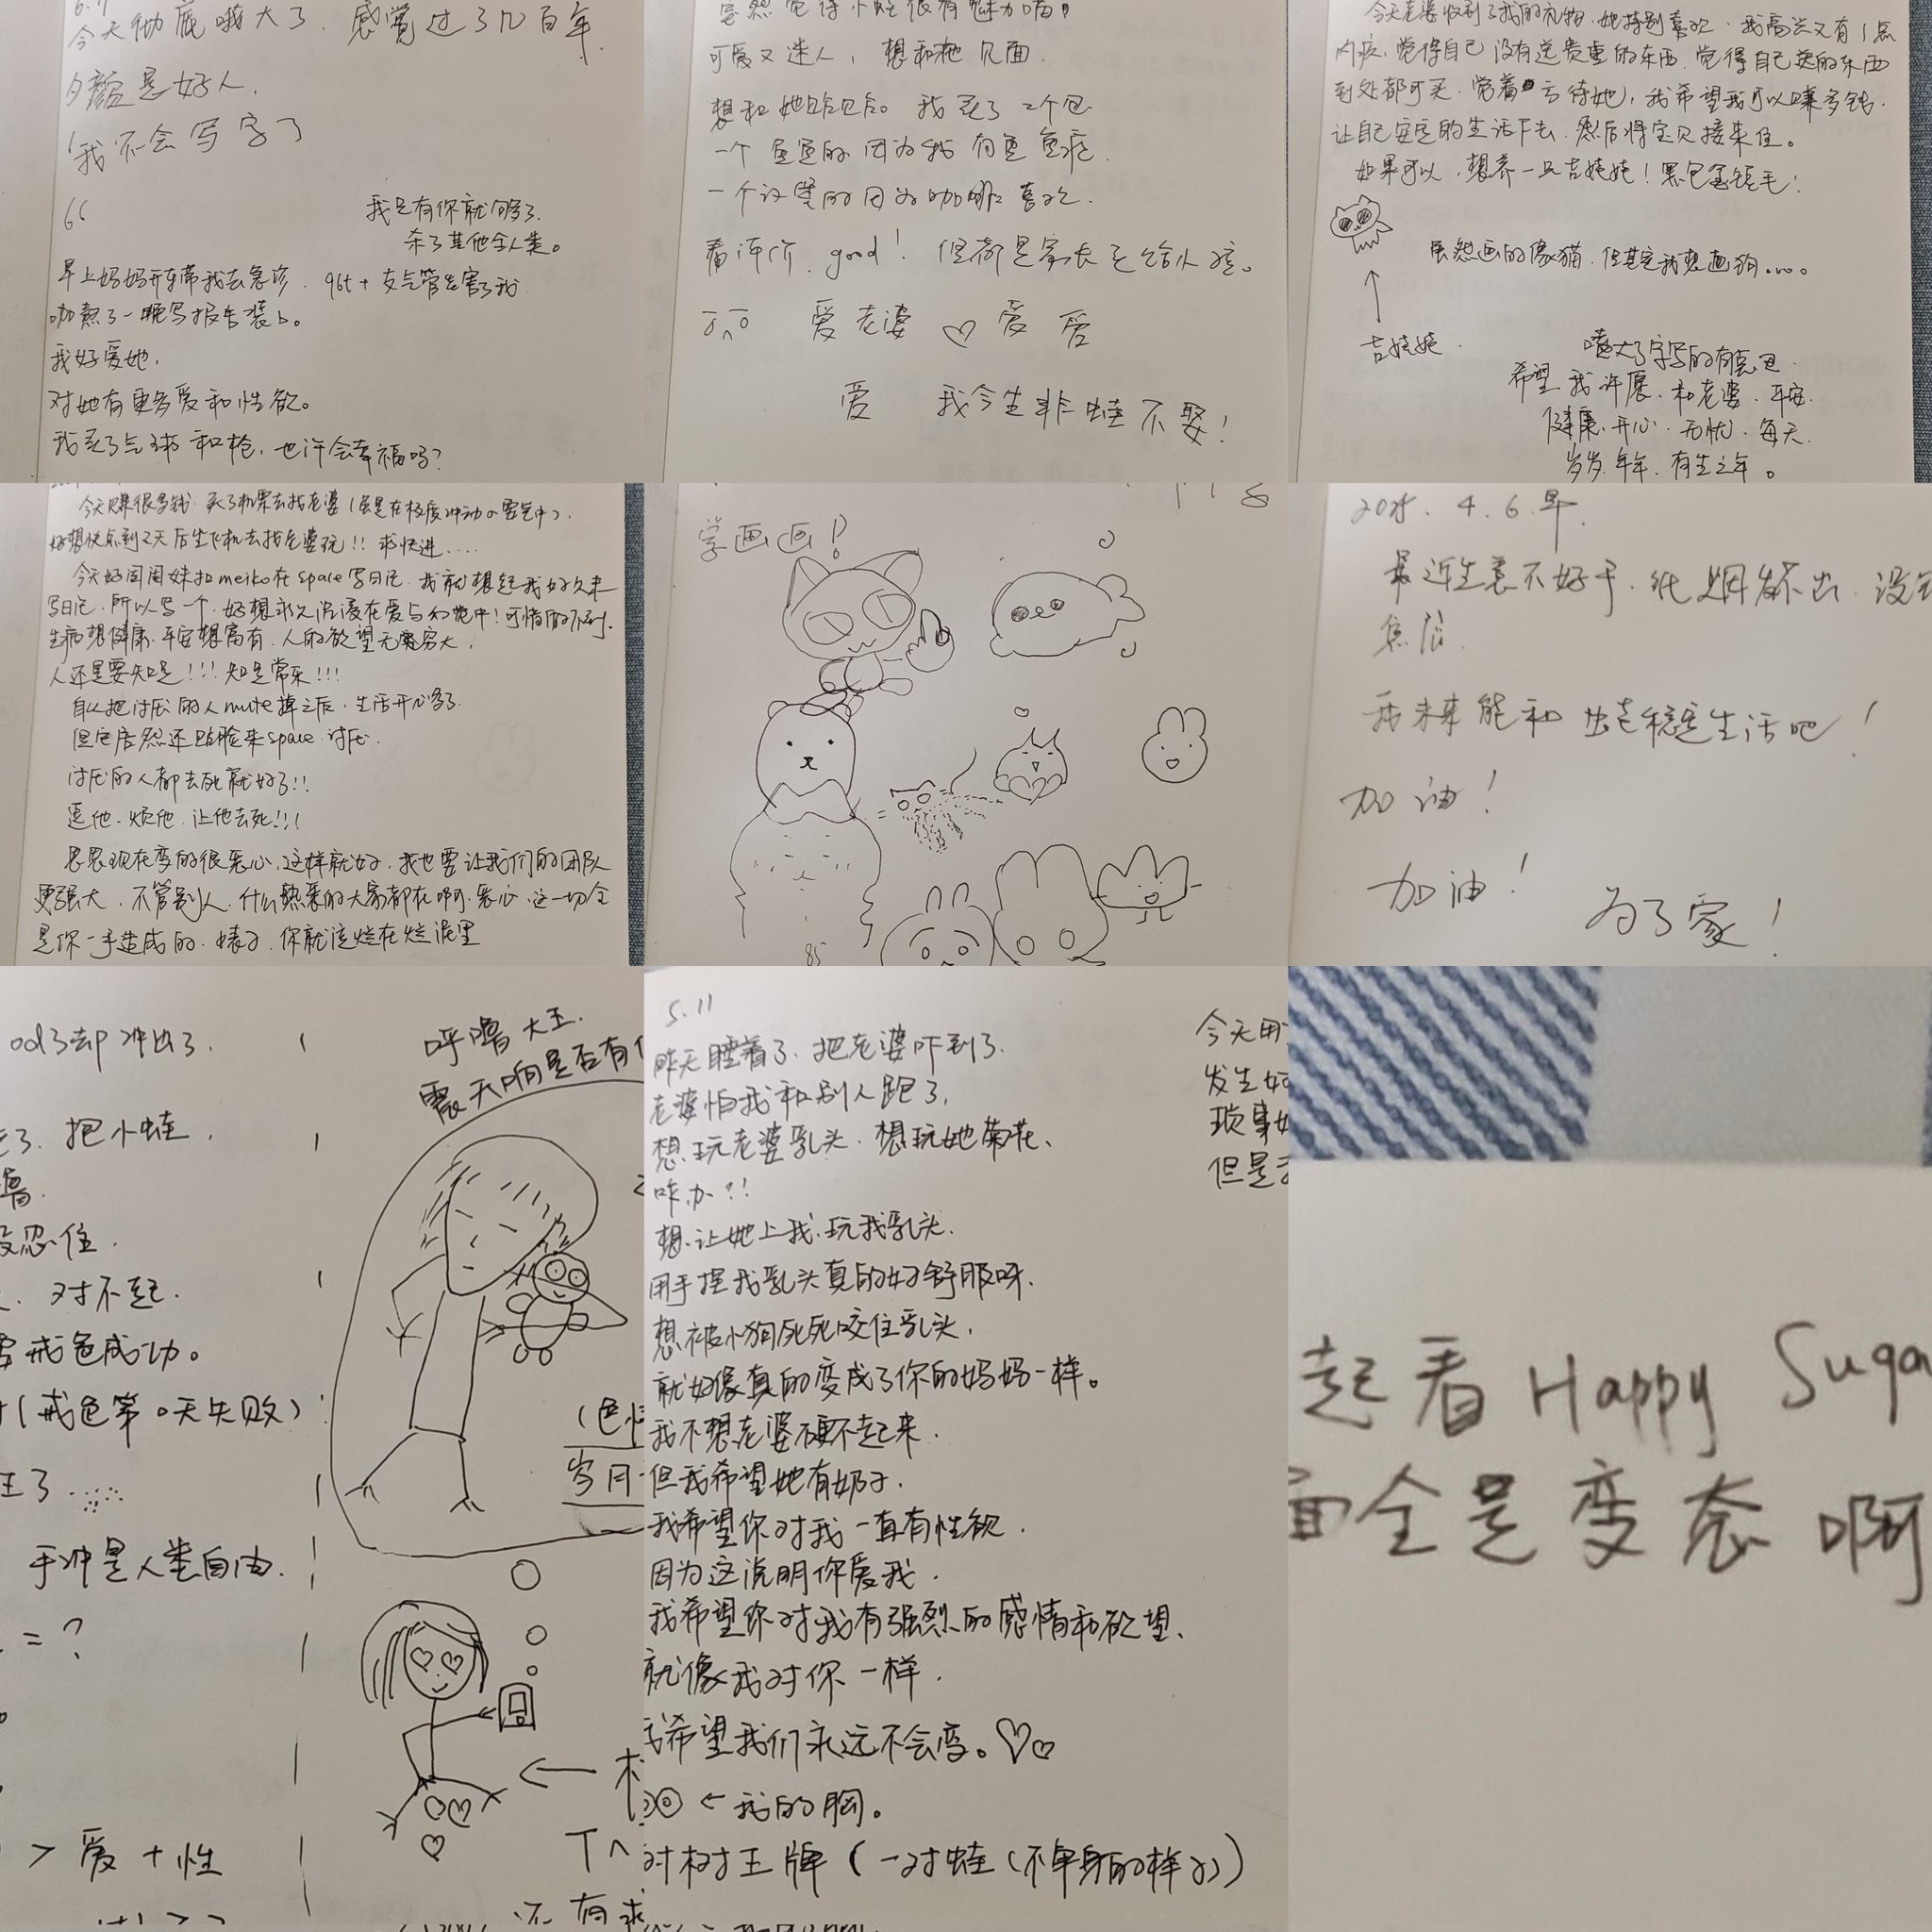 今天彻底哦大了。感觉过了几百年.
夕颜是好人.
我不会写字了
66
我只有你就够了.
杀了其他全人类。
早上妈妈开车带我去急诊.
我好爱她.
对她有更多爱和性欲。
我买了气球和枪.也许会幸福吗?
可爱又迷人,想和她见面.
想和她贴贴。我买了2个包
看评价.good!但都是家长买给小孩。
爱老婆 ♡ 爱 爱
爱 我今生非蛙不娶!
今天老婆收到了我的礼物.她特别喜欢.我高兴又有1点
内疚.觉得自己没有送贵重的东西.觉得自己送的东西
到处都可买.觉着亏待她,我希望我可以赚多钱.
让自己安定的生活下去.然后将宝贝接来住。
如果可以,想养一只吉娃娃!黑色金短毛!
虽然画的像猫.但其实我想画狗。
↑
吉娃娃.
嗑大了字写的有点丑.
希望我许愿.和老婆.平安.
健康.开心.无忧.每天.
岁岁.年年.有生之年。
今天赚很多钱.买了机票去找老婆
好想快点到2天后坐飞机去找老婆玩!!求快进....
今天好闺闺妹和meiko在space写日记.我就想起我好久未
写日记.所以写一个.好想永久沉浸在爱与和她中!可惜
生病想健康.平安想富有.人的欲望无穷大.
人还是要知足!!!知足常乐!!!
自从把讨厌的人mute掉之后.生活开心多了.
但它居然还贴脸来space.讨厌.
讨厌的人都去死就好了!!
逗他.烦他.让他去死!!!
现在变的很恶心.这样就好.我也要让我们的团队
更强大.不管别人.什么熟悉的大家都在啊.恶心.这一切全
是你一手造成的.婊子.你就该烂在烂泥里
学画画!
85
4.6.早.
最近生意不好于.纸烟发不出.没
焦虑.
我未来能和 生活吧!
加油!
加油!
为了家!
od了却冲出了.
了.把小蛙.
噜.
没忍住.
.对不起.
戒色成功。
(戒色第0天失败)
手冲是人类自由.
=?
> 爱+性
呼噜大王.
震天响是否有
岁月
还有
5.11
昨天睡着了.把老婆吓到了.
老婆怕我和别人跑了.
想玩老婆乳头.想玩她菊花、
咋办?!
想让她上我.玩我乳头.
用手捏我乳头真的好舒服呀.
想被小狗死死咬住乳头.
就好像真的变成了你的妈妈一样。
我不想老婆硬不起来.
但我希望她有奶子.
我希望你对我一直有性欲.
因为这说明你爱我.
我希望你对我有强烈的感情和欲望、
就像我对你一样.
希望我们永远不会变。♡♡
← 我的胸。
对树王牌(一对蛙(不单身的样子))
今天用
发生好
琐事
但是
起看 Happy Suga
面全是变态啊